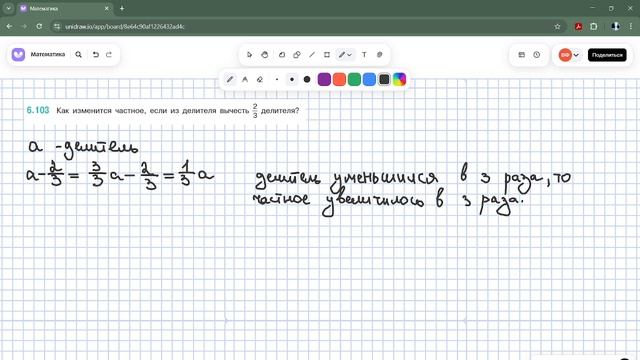 Математика
unidraw.io/app/board/8e64c90af1226432ad4c
Математика
Поделиться
6.103 Как изменится частное, если из делителя вычесть 2/3 делителя?
a - делитель
a - 2/3 = 3/3 a - 2/3 = 1/3 a
делитель уменьшился в 3 раза, то
частное увеличилось в 3 раза.